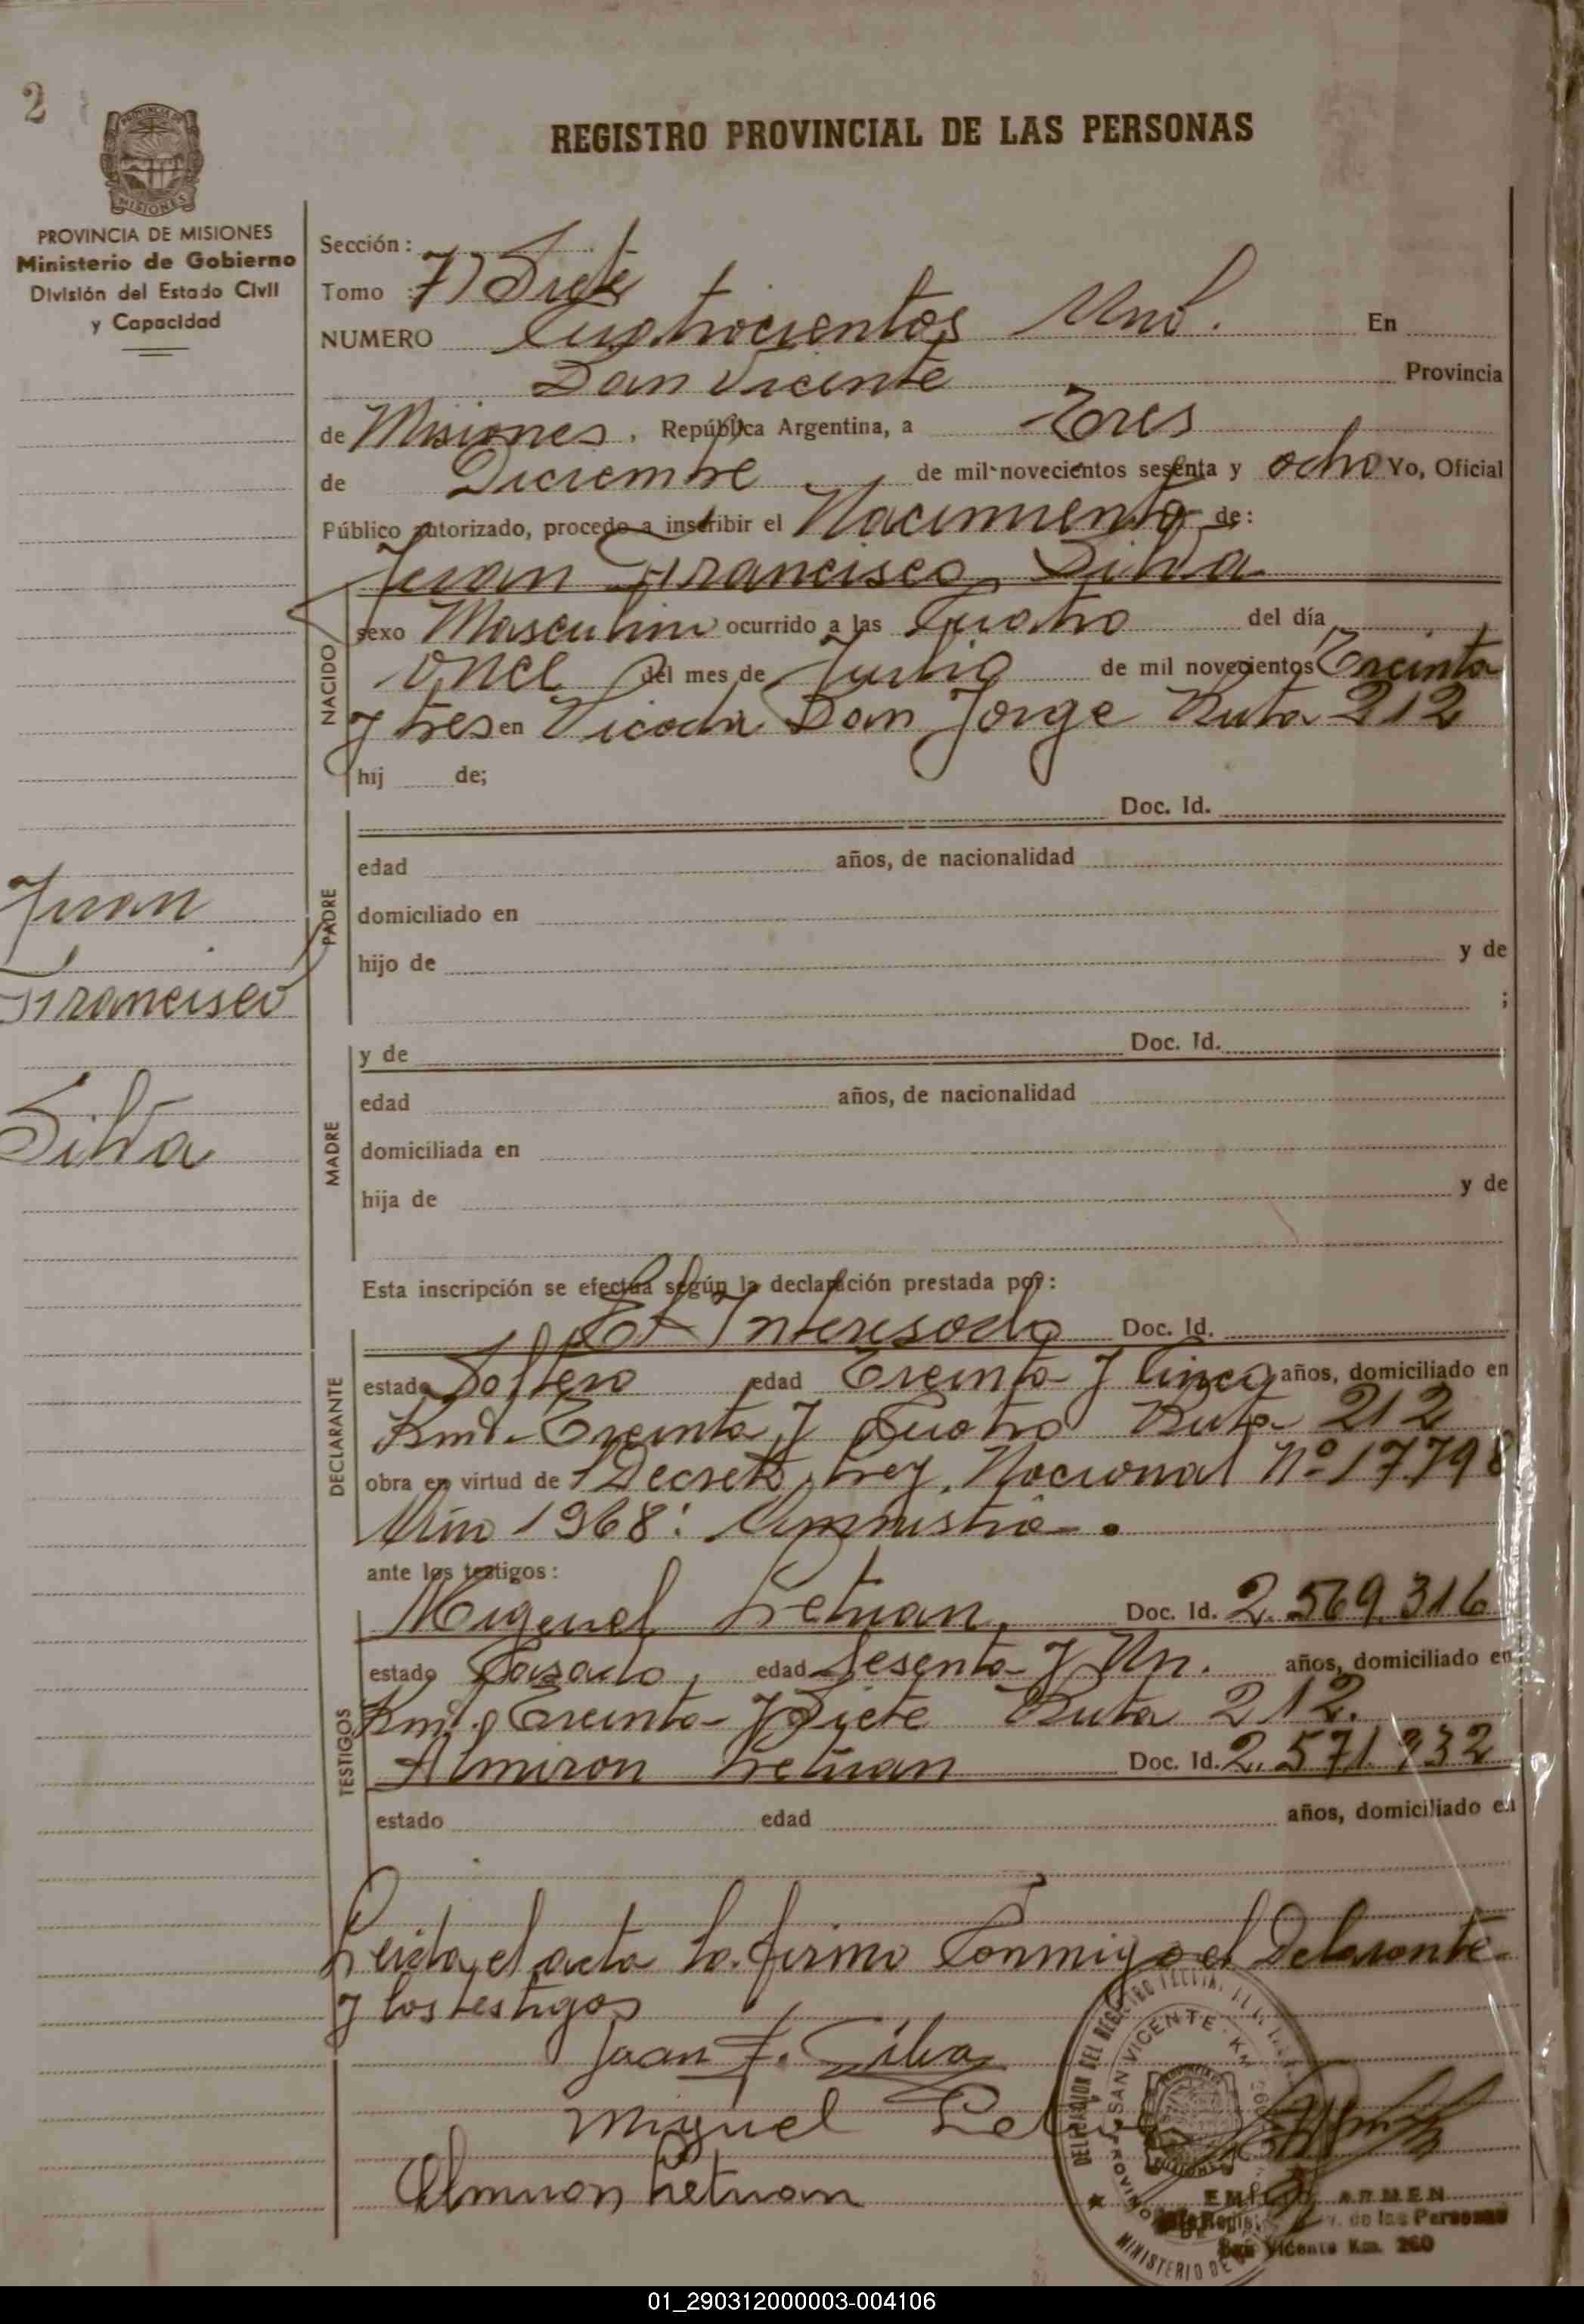 2
REGISTRO PROVINCIAL DE LAS PERSONAS
PROVINCIA DE MISIONES
Ministerio de Gobierno
División del Estado Civil
y Capacidad
Sección:
Tomo : 7) Siete
NUMERO Cuatrocientos Uno. En
San Vicente Provincia
de Misiones, República Argentina, a Tres
de Diciembre de mil novecientos sesenta y ocho Yo, Oficial
Público autorizado, procedo a inscribir el Nacimiento de:
Juan Francisco Silva
NACIDO
sexo Masculino ocurrido a las Cuatro del día
once del mes de Julio de mil novecientos Treinta
y tres en Picada San Jorge Ruta 212
hij de;
Doc. Id.
PADRE
edad años, de nacionalidad
domiciliado en
hijo de y de
;
Juan
Francisco
Silva
y de Doc. Id.
MADRE
edad años, de nacionalidad
domiciliada en
hija de y de
Esta inscripción se efectúa según la declaración prestada por:
El Interesado Doc. Id.
DECLARANTE
estado Soltero edad Treinta y Cinco años, domiciliado en
Kmt. Treinta y Cuatro Ruta 212
obra en virtud de Decreto Ley, Nacional Nº 17798
Año 1968: Amnistia.
ante los testigos:
TESTIGOS
Miguel Letuan, Doc. Id. 2.569.316
estado Casado, edad Sesenta y Un. años, domiciliado en
Kmt. Treinta y Siete Ruta 212.
Almiron Letuan Doc. Id. 2.571.932
estado edad años, domiciliado en
Leida el acta la firma Conmigo el Delarante
y los testigos
Juan F. Silva
Miguel
Almiron Letuan
DELEGACION DEL REGISTRO
SAN VICENTE - KM
MISIONES
MINISTERIO DE
ARMEN
de las Personas
San Vicente Km. 260
01_290312000003-004106